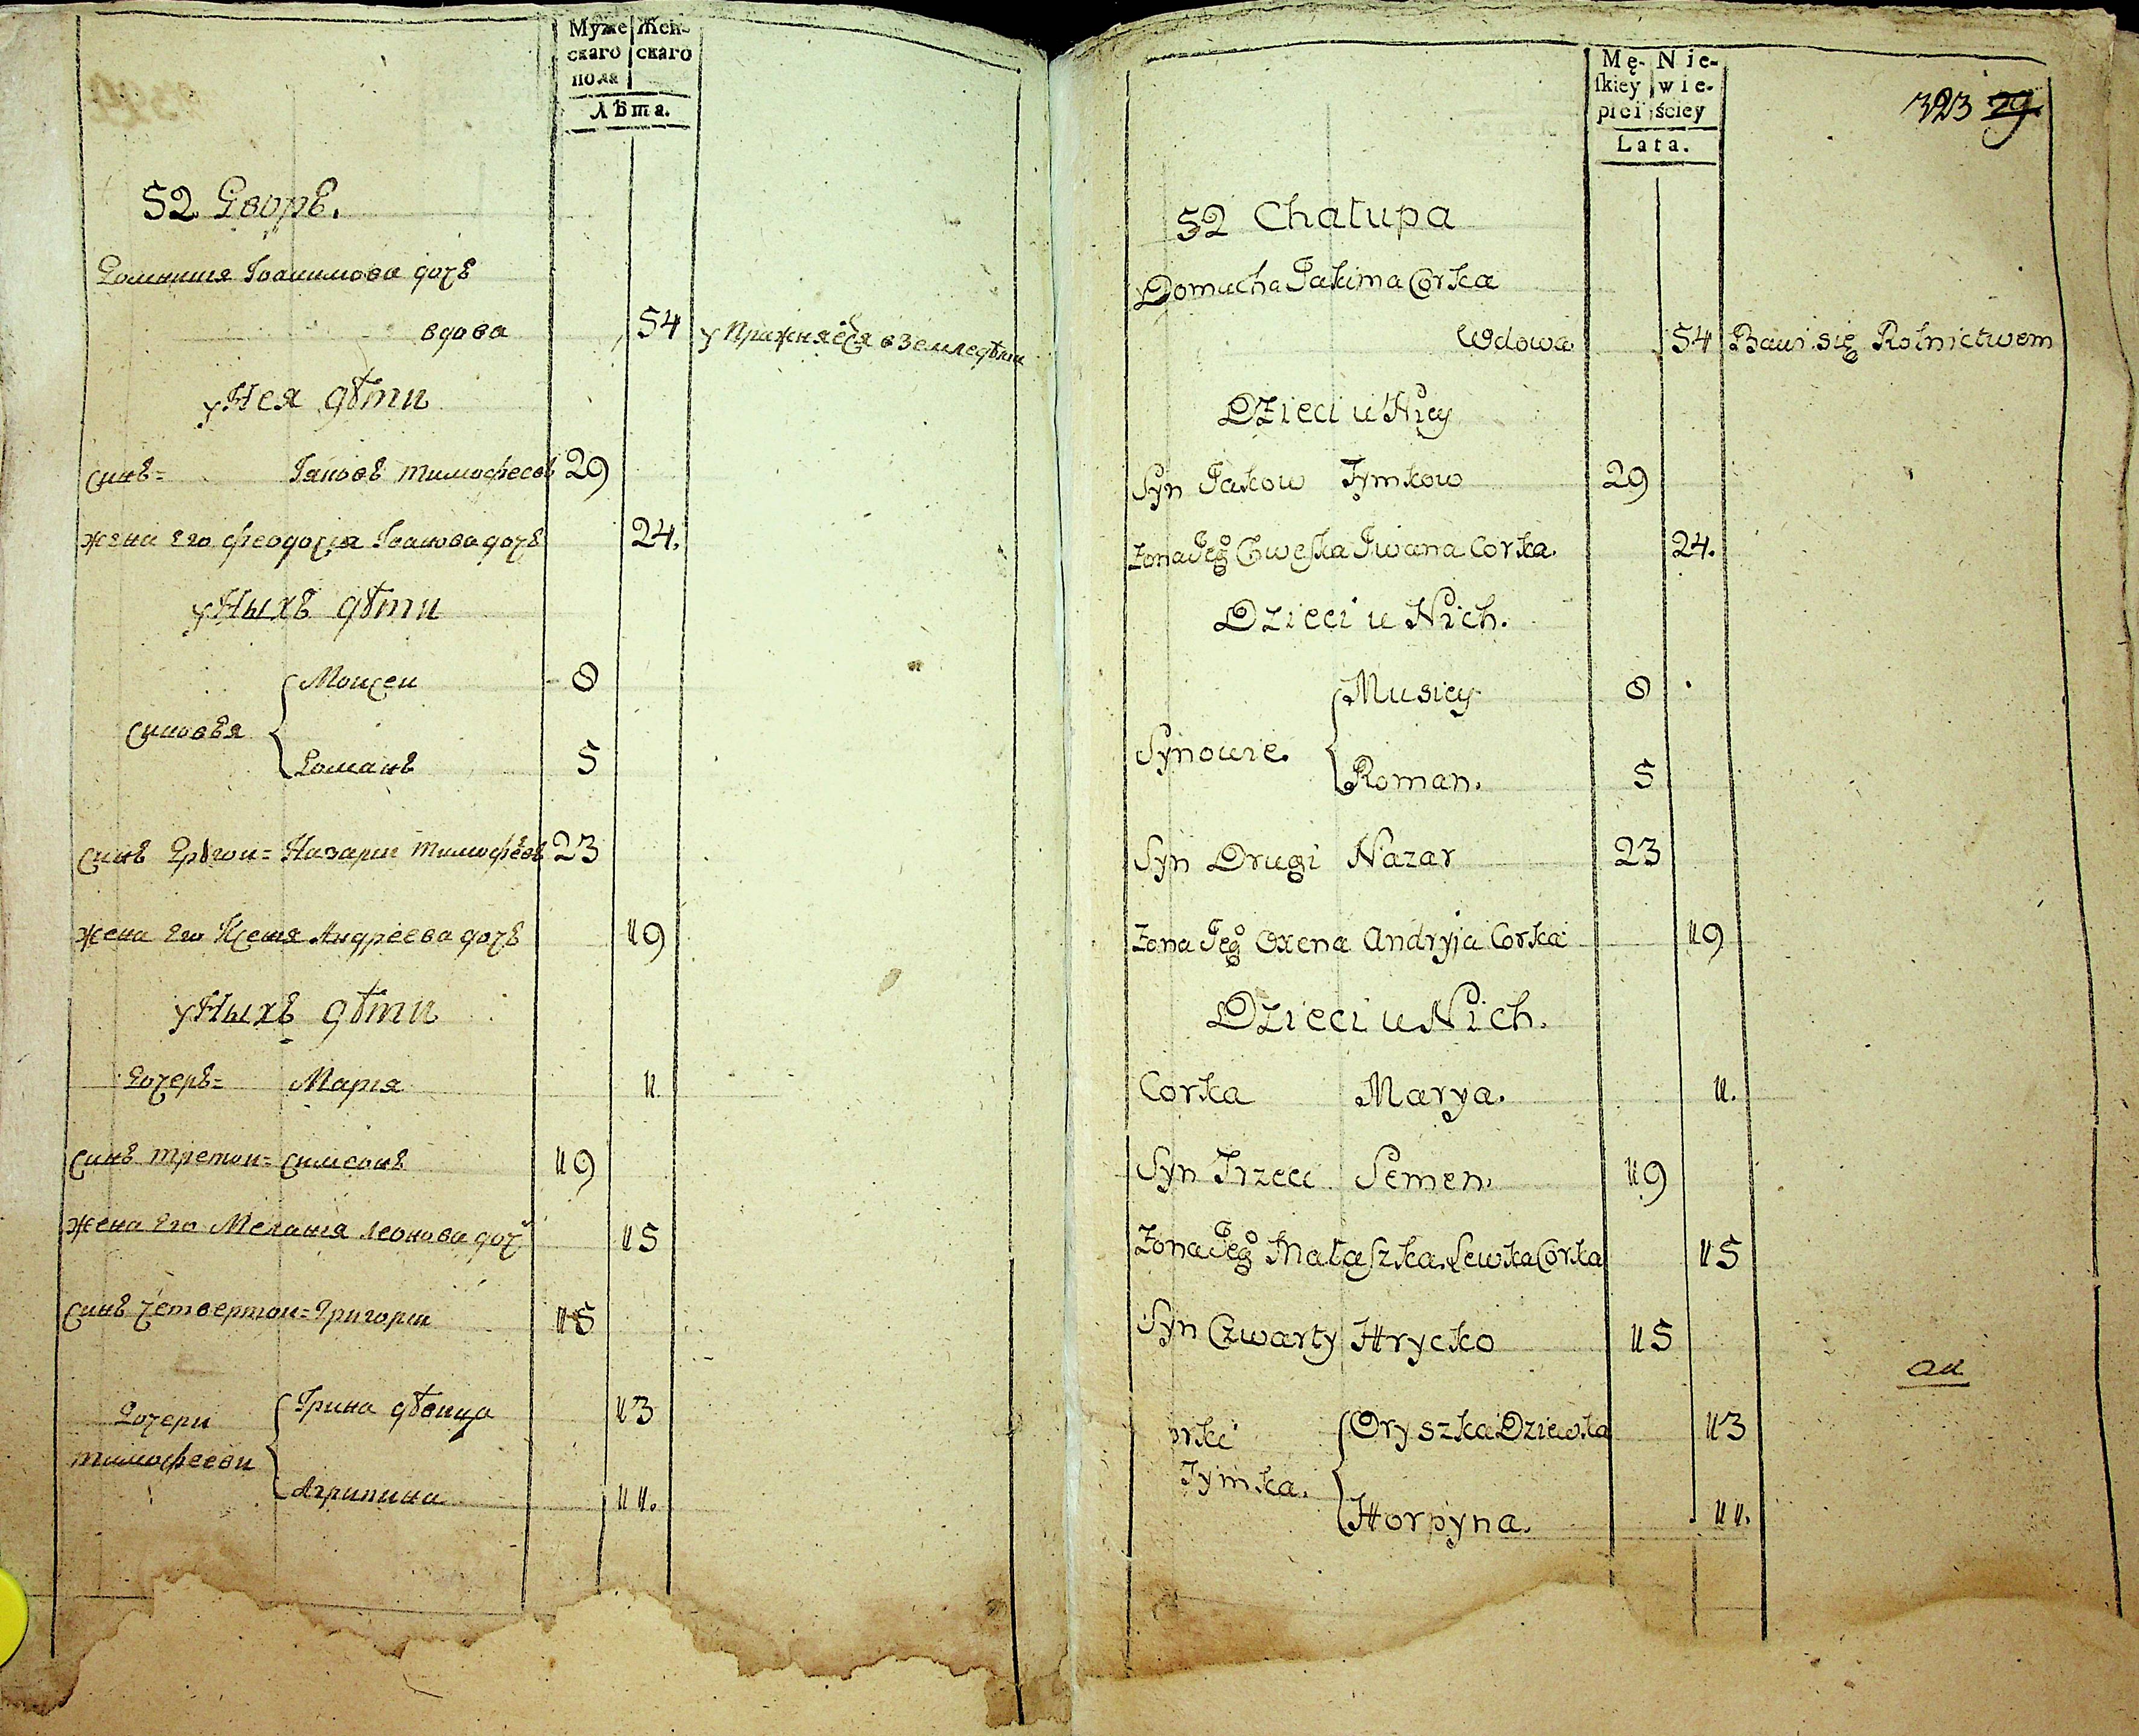 Муже Жен-
скаго скаго
пола
Лѣта.
52 Дворъ.
Домникия Іоакимова дочъ
вдова 54 упражняеся в Земледѣли
у Нея дѣти
синъ= Іаковъ тимофеевъ 29
жена Его феодосия Іванова дочъ 24.
у Ныхъ дѣти
Моисеи 8
синовья
Романъ 5
синъ Другои= Назарии тимофѣевъ 23
жена Его Ксения Андреева дочъ 19
у Ныхъ дѣти
Дочеръ= Мария 1.
синъ третои= симеонъ 19
жена Его Мелания леонова дочъ 15
синъ Четвертои= Григории 15
Дочери Ірина дѣвица 13
тимофееви
Агрипина 11.
Mę- Nie-
ſkiey wie-
płci ściey
Lata.
323 29
52 Chałupa
Domucha Jakima Corka
Wdowa 54 Bawi się Rolnictwem
Dzieci u Niey
Syn Jakow Tymkow 29
Zona Jego Chweſka Iwana Corka. 24.
Dzieci u Nich.
Musiey 8
Synowie.
Roman. 5
Syn Drugi Nazar 23
Zona Jego Oxena Andryja Corka 19
Dzieci u Nich.
Corka Marya. 1.
Syn Trzeci Semen. 19
Zona Jego Małaszka Lewka Corka 15
Syn Czwarty Hrycko 15
orki Oryszka Dziewka 13
Tymka.
Horpyna. 11.